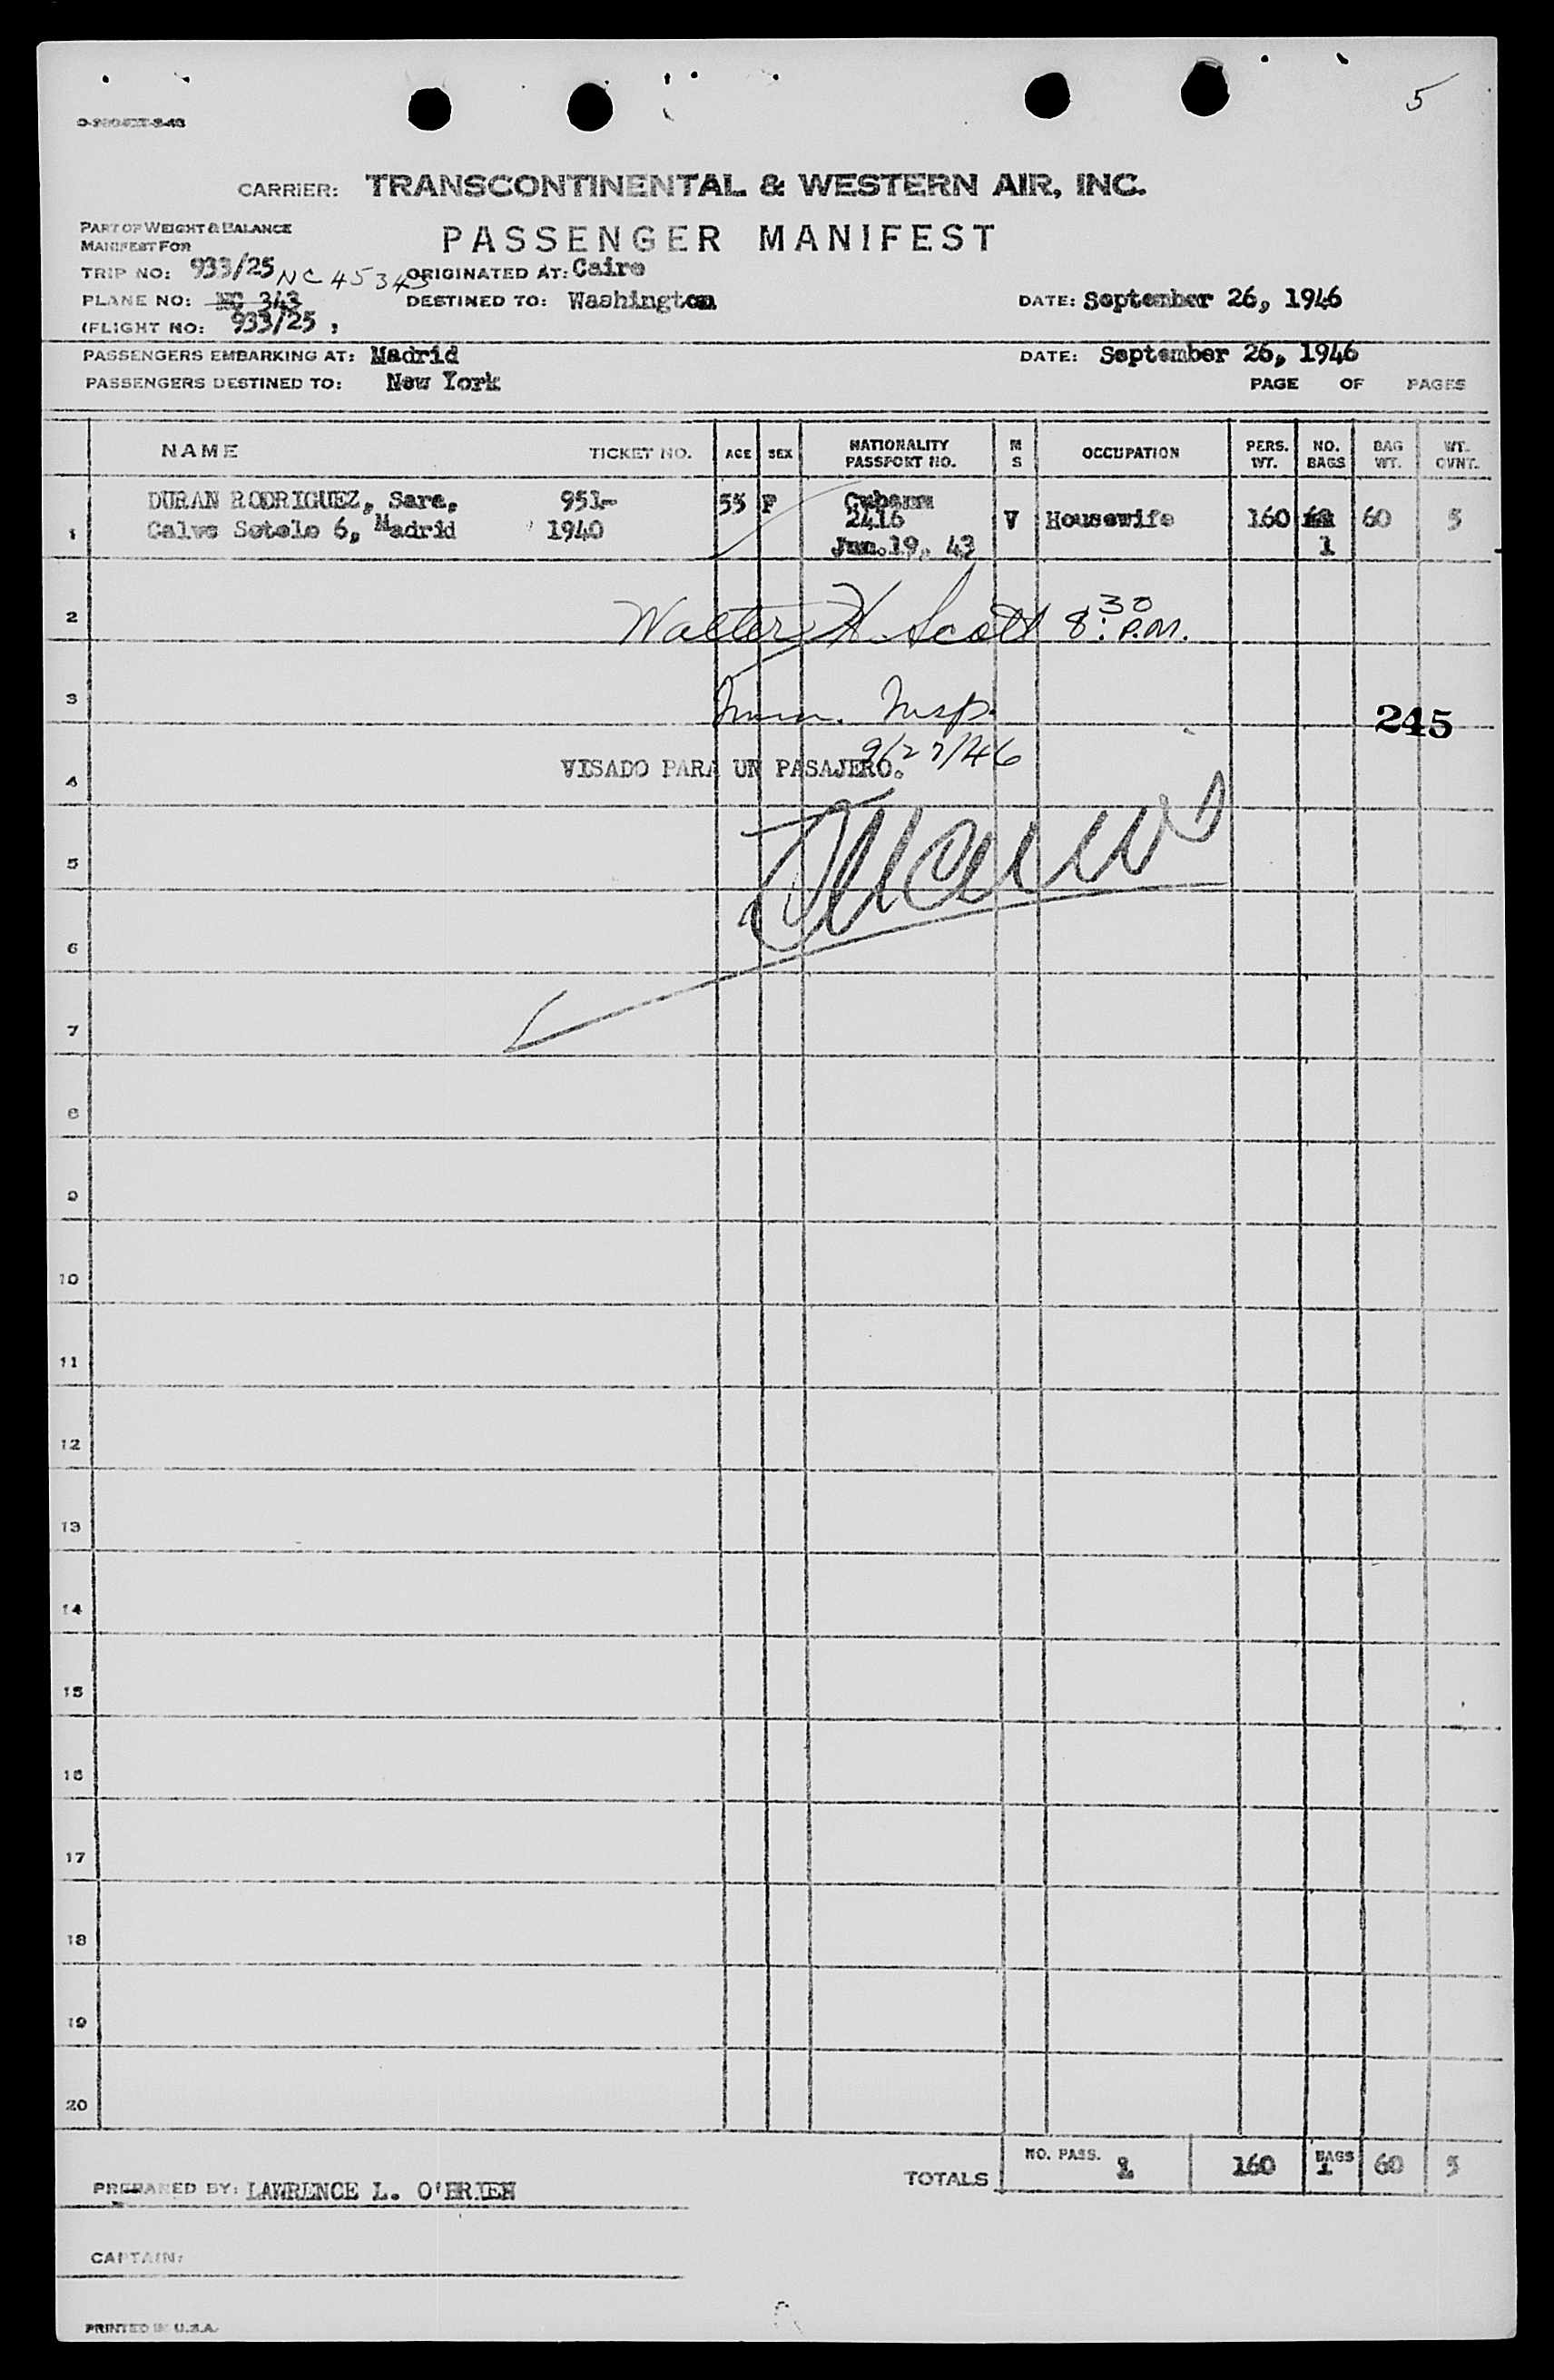 5
CARRIER: TRANSCONTINENTAL & WESTERN AIR, INC.
PART OF WEIGHT & BALANCE
MANIFEST FOR
PASSENGER MANIFEST
TRIP NO: 933/25 NC 45343 ORIGINATED AT: Cairo
PLANE NO: NC 343 DESTINED TO: Washington DATE: September 26, 1946
(FLIGHT NO: 933/25 ,
PASSENGERS EMBARKING AT: Madrid DATE: September 26, 1946
PASSENGERS DESTINED TO: New York PAGE OF PAGES
NAME TICKET NO. AGE SEX NATIONALITY PASSPORT NO. M S OCCUPATION PERS. WT. NO. BAGS BAG WT. WT. OVNT.
DURAN RODRIGUEZ, Sara, 951- 55 F Cubana
1 Calvo Sotelo 6, Madrid 1940 2416 V Housewife 160 60 5
Jun.19, 43 1
2 Walter H. Scott 8:30 P.M.
3 Imm. Insp.
245
9/27/46
4 VISADO PARA UN PASAJERO.
5
6
7
8
9
10
11
12
13
14
15
16
17
18
19
20
TOTALS NO. PASS. 1 160 BAGS 1 60 5
PREPARED BY: LAWRENCE L. O'BRIEN
CAPTAIN:
PRINTED IN U.S.A.